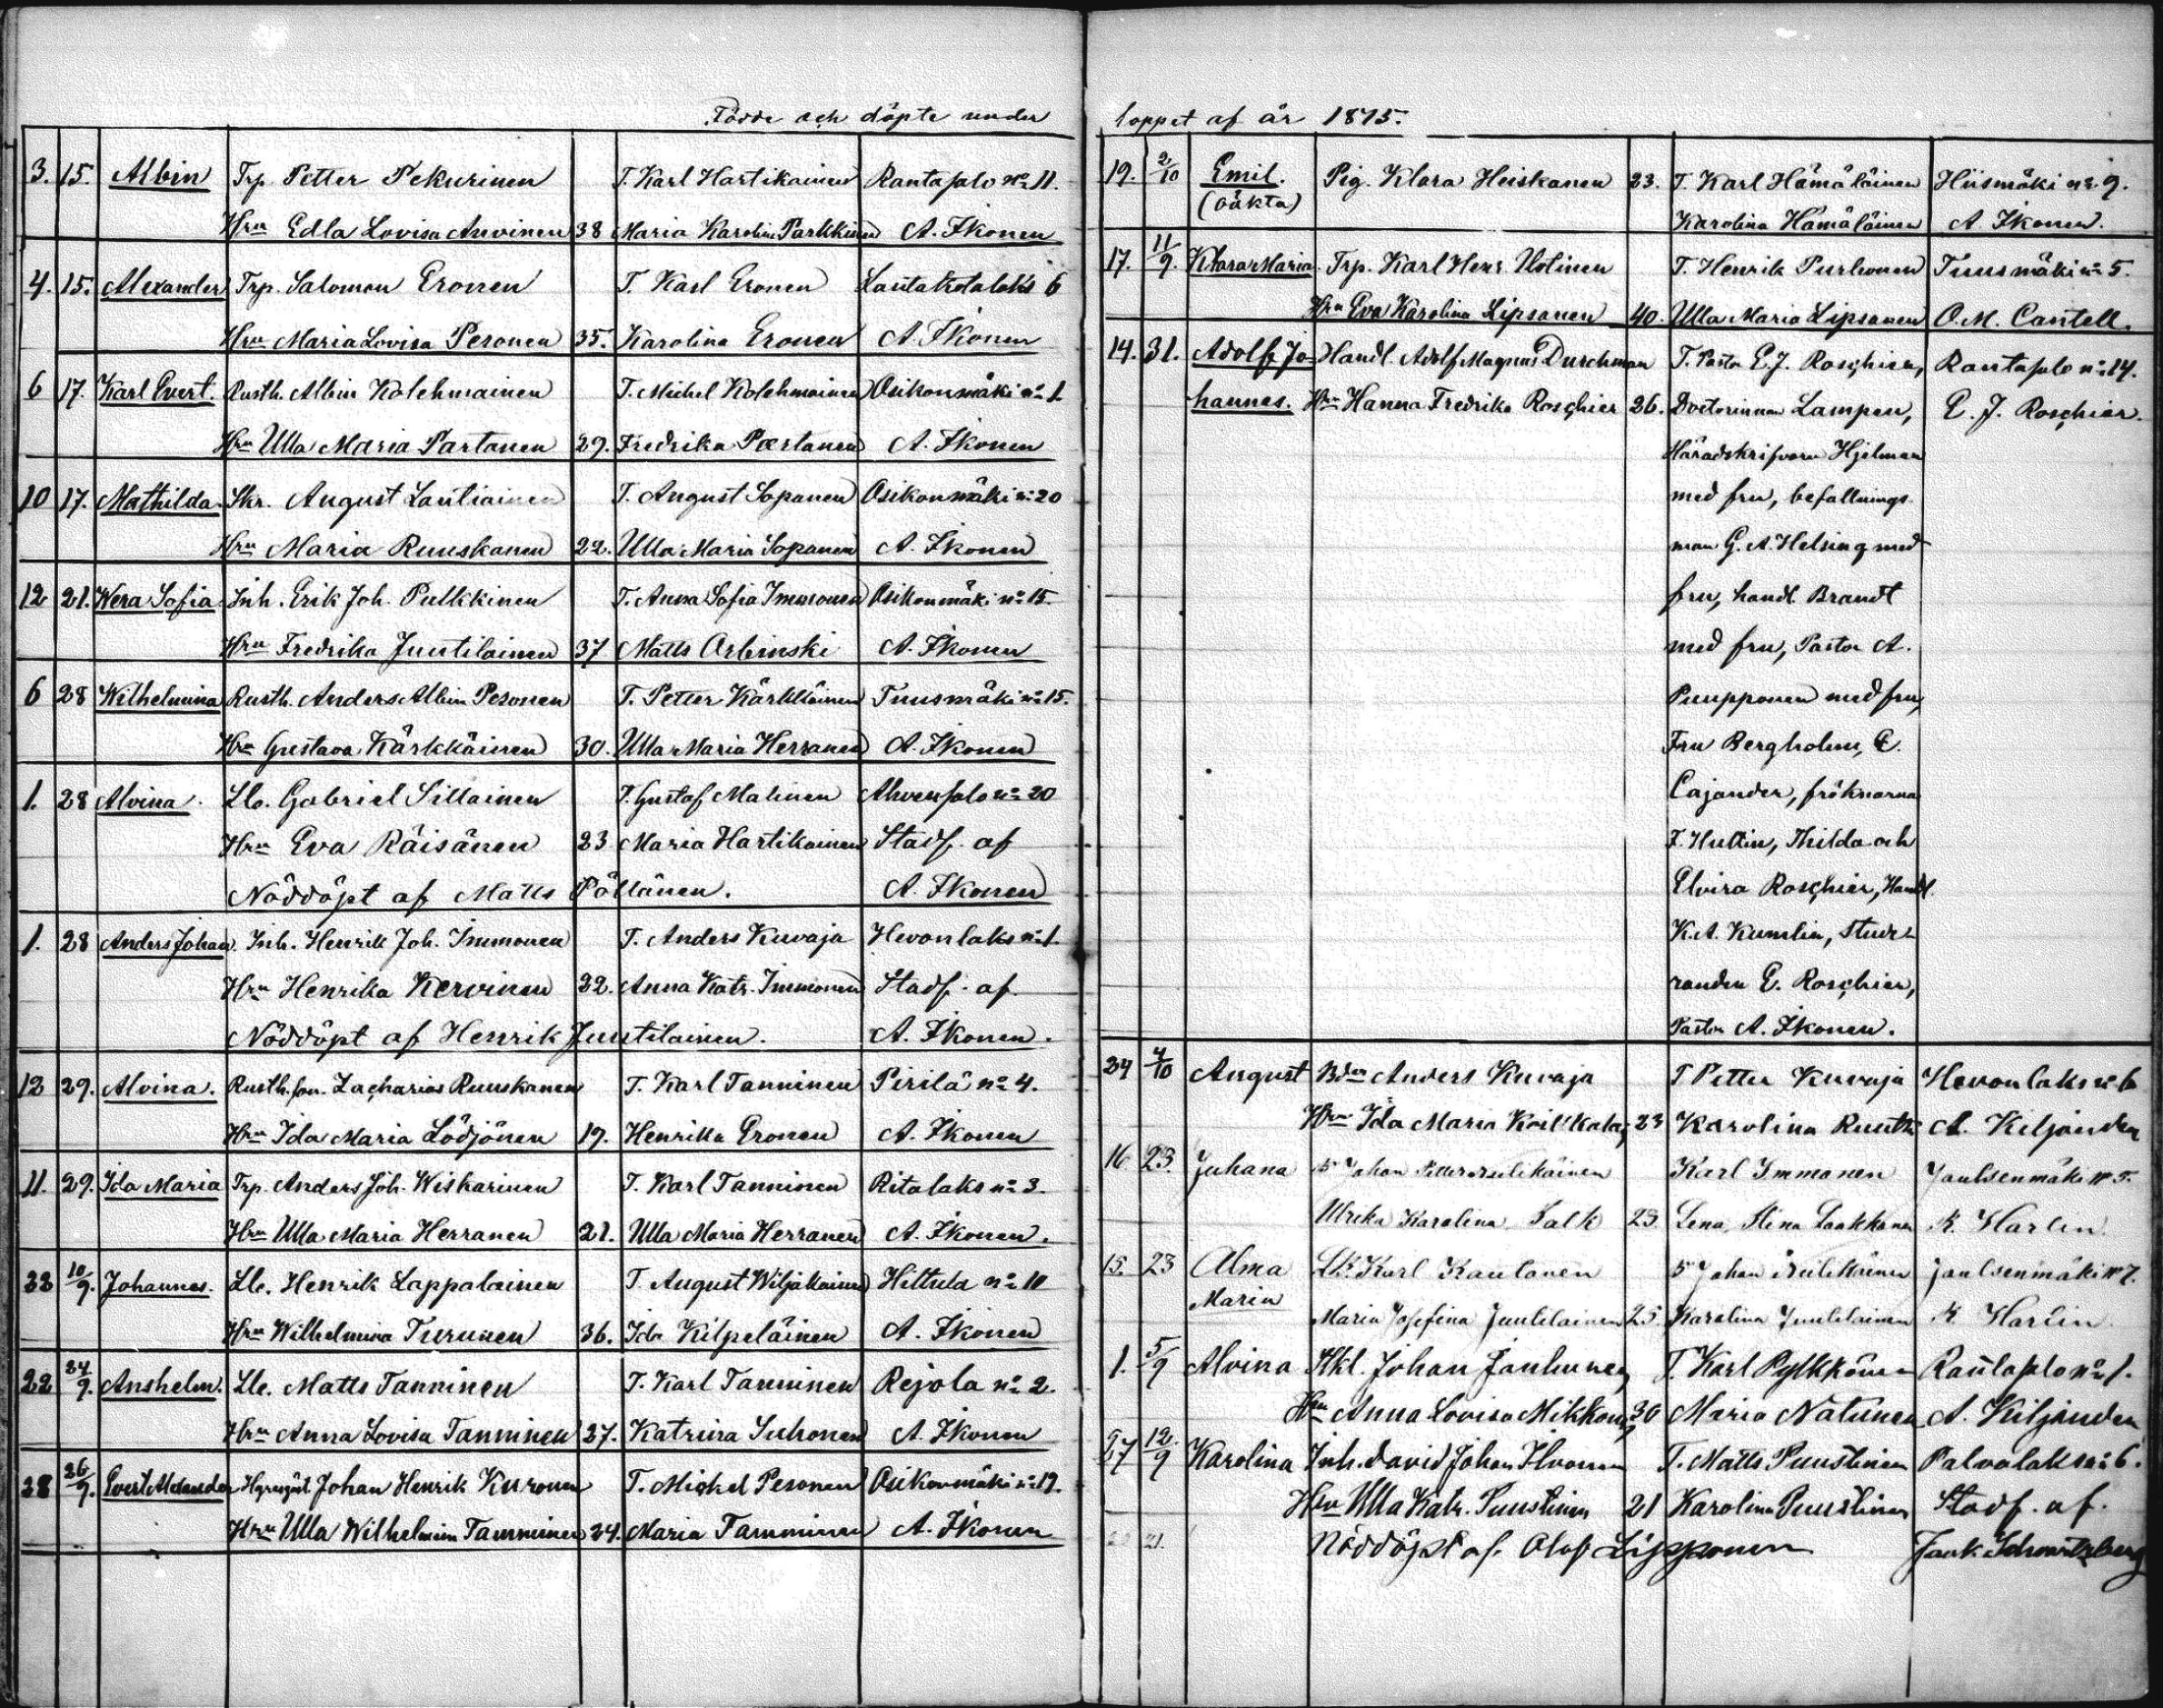 Födde och döpte under
3. 15. Albin Trp. Petter Pekurinen T. Karl Hartikainen Rantasalo No 11.
Hru Edla Lovisa Auvinen 38 Maria Karolina Parkkinen A. Ikonen
4. 15. Alexander Trp. Salomon Eronen T. Karl Eronen Lautakotalaks 6
Hru Maria Lovisa Pesonen 35. Karolina Eronen A. Ikonen
6 17. Karl Evert. Rusth. Albin Kolehmainen T. Michel Kolehmainen Osikonmäki No 1.
Hru Ulla Maria Partanen 29. Fredrika Partanen A. Ikonen
10 17. Mathilda. Skr. August Lautiainen T. August Sopanen Osikonmäki No 20
Hru Maria Ruuskanen 22. Ulla Maria Sopanen A. Ikonen
12 21. Wera Sofia Inh. Erik Joh. Pulkkinen T. Anna Sofia Immonen Osikonmäki No 15.
Hru Fredrika Juutilainen 37 Matts Orbinski A. Ikonen
6 28 Wilhelmina Rusth. Anders Albin Pesonen T. Petter Kärkkäinen Tuusmäki No 15.
Hru Gustava Kärkkäinen 30. Ulla Maria Herranen A. Ikonen
1. 28 Alvina. Lb. Gabriel Sillainen T. Gustaf Malinen Ahvensalo No 20
Hru Eva Räisänen 23 Maria Hartikainen Stadf. af
Nöddöpt af Matts Pöllänen. A. Ikonen
1. 28 Anders Johan. Inh. Henrik Joh. Immonen T. Anders Kuvaja Hevonlaks No 1.
Hru Henrika Kervinen 32. Anna Katr. Immonen Stadf. af
Nöddöpt af Henrik Juutilainen. A. Ikonen.
12 29. Alvina. Rusth. son. Zacharias Ruuskanen T. Karl Tanninen Pirilä No 4.
Hru Ida Maria Lödjönen 19. Henrika Eronen A. Ikonen
11. 29. Ida Maria Trp. Anders Joh. Wiskarinen T. Karl Tanninen Ritalaks No 3.
Hru Ulla Maria Herranen 21. Ulla Maria Herranen A. Ikonen.
23 10/9. Johannes. Lb. Henrik Lappalainen T. August Wiljakainen Hittula No 10
Hru Wilhelmina Turunen 36. Ida Kilpeläinen A. Ikonen
22 24/9. Anshelm. Lb. Matts Tanninen T. Karl Tanninen Rejola No 2.
Hru Anna Lovisa Tanninen 27. Katriina Suhonen A. Ikonen
28 26/9. Evert Alexander Johan Henrik Kuronen T. Michel Pesonen Osikonmäki No 19.
Hru Ulla Wilhelmiina Tamminen 24. Maria Tamminen A. Ikonen
loppet af år 1875.
19. 2/10 Emil. Pig. Klara Heiskanen 23. T. Karl Hämäläinen Hiismäki No 9.
(oäkta) Karolina Hämäläinen A. Ikonen.
17. 11/9. Klara Maria. Trp. Karl Henr. Ustinen T. Henrik Purhonen Tuusmäki No 5.
Hru Eva Karolina Lipsanen 40. Ulla Maria Lipsanen O. M. Cantell.
14. 31. Adolf Jo- Handl. Adolf Magnus Durchman T. Pastor E. J. Roschier, Rantasalo No 14.
hannes. Hru Hanna Fredrika Roschier 26. Doctorinnan Lampen, E. J. Roschier.
Häradskrifvaren Hjelman
med fru, befallnings
man G. A. Helsing med
fru, handl. Brandt
med fru, Pastor A.
Puupponen med fru,
Fru Bergholm, E.
Cajander, fröknarna
F. Hultin, Thilda och
Elvira Roschier, Handl.
K. A. Kumlin, Stude-
randen E. Roschier,
Pastor A. Ikonen.
24 4/10 August Bdn Anders Kuvaja T Petter Kuvaja Hevonlaks No 6
Hru Ida Maria 23 Karolina A. Kiljander
16 23. Juhana Johan Petter Karl Immonen Joutsenmäki No 5.
Ulreka Karolina Falk 23. Lena Stina Laakkonen K. Harlin
15. 23 Alma Karl Kautonen Johan Joutsenmäki No 7.
Maria Maria Josefina Juutilainen 25 Karolina Juutilainen K. Harlin.
1. 5/9 Alvina Itkl. Johan Jauhunen T. Karl Pylkkönen Rantasalo No 1.
Hru Anna Lovisa Mikkonen 30 Maria Natunen A. Kiljander
27 12/9 Karolina Inh. David Johan Ilvonen T. Matts Puustinen Palvalaks No 6.
Hru Ulla Katr. Puustinen 21 Karolina Puustinen Stadf. af.
21. Nöddöpt af. Olof Lipponen